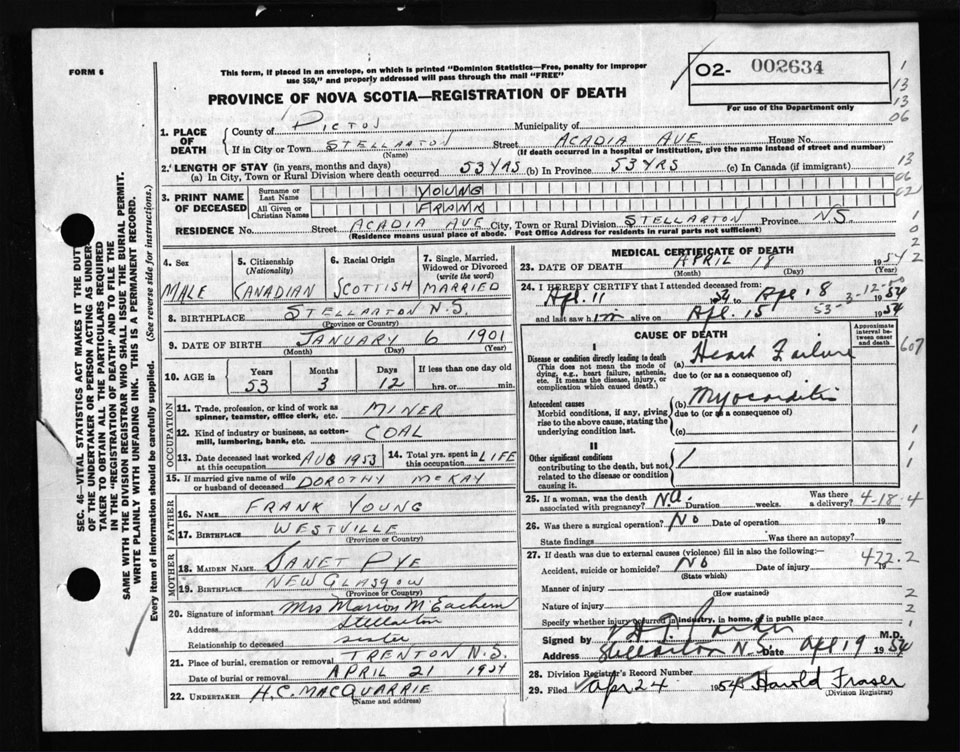 FORM 6
This form, if placed in an envelope, on which is printed "Dominion Statistics—Free, penalty for improper
use $50," and properly addressed will pass through the mail "FREE"
02- 002634
PROVINCE OF NOVA SCOTIA—REGISTRATION OF DEATH
For use of the Department only
1
13
13
06
13
06
02
1
0
2
2
1. PLACE OF DEATH
County of PICTOU Municipality of
If in City or Town STELLARTON Street ACADIA AVE House No.
(Name) (If death occurred in a hospital or institution, give the name instead of street and number)
2. LENGTH OF STAY (in years, months and days)
(a) In City, Town or Rural Division where death occurred 53 YRS (b) In Province 53 YRS (c) In Canada (if immigrant)
3. PRINT NAME OF DECEASED
Surname or Last Name YOUNG
All Given or Christian Names FRANK
RESIDENCE No. Street ACADIA AVE City, Town or Rural Division STELLARTON Province N.S.
(Residence means usual place of abode. Post Office Address for residents in rural parts not sufficient)
4. Sex
MALE
5. Citizenship (Nationality)
CANADIAN
6. Racial Origin
SCOTTISH
7. Single, Married, Widowed or Divorced (write the word)
MARRIED
8. BIRTHPLACE STELLARTON N.S.
(Province or Country)
9. DATE OF BIRTH JANUARY 6 1901
(Month) (Day) (Year)
10. AGE in Years Months Days If less than one day
53 3 12 hrs. or min.
OCCUPATION
11. Trade, profession, or kind of work as
spinner, teamster, office clerk, etc. MINER
12. Kind of industry or business, as cotton-
mill, lumbering, bank, etc. COAL
13. Date deceased last worked
at this occupation AUG 1953
14. Total yrs. spent in
this occupation LIFE
15. If married give name of wife
or husband of deceased DOROTHY McKAY
FATHER
16. NAME FRANK YOUNG
17. BIRTHPLACE WESTVILLE
(Province or Country)
MOTHER
18. MAIDEN NAME JANET PYE
19. BIRTHPLACE NEW GLASGOW
(Province or Country)
20. Signature of informant Mrs Marion McEachern
Address Stellarton
Relationship to deceased sister
21. Place of burial, cremation or removal TRENTON N.S.
Date of burial or removal APRIL 21 1954
22. UNDERTAKER H.C. MACQUARRIE
(Name and address)
MEDICAL CERTIFICATE OF DEATH
23. DATE OF DEATH APRIL 18 1954
(Month) (Day) (Year)
24. I HEREBY CERTIFY that I attended deceased from:
Apl. 11 54 to Apl 18 1954
53-3-12-50
and last saw him alive on Apl. 15 1954
CAUSE OF DEATH
Approximate interval between onset and death
I
Disease or condition directly leading to death
(This does not mean the mode of
dying, e.g., heart failure, asthenia,
etc. It means the disease, injury, or
complication which caused death.)
(a) Heart Failure
due to (or as a consequence of)
607
Antecedent causes
Morbid conditions, if any, giving
rise to the above cause, stating the
underlying condition last.
(b) Myocarditis
due to (or as a consequence of)
(c)
II
Other significant conditions
contributing to the death, but not
related to the disease or condition
causing it.
1
1
1
25. If a woman, was the death
associated with pregnancy? N.A. Duration: weeks. Was there a delivery?
4-18-4
26. Was there a surgical operation? No Date of operation 19
State findings Was there an autopsy?
27. If death was due to external causes (violence) fill in also the following:—
Accident, suicide or homicide? No Date of injury 19
(State which)
422.2
Manner of injury
(How sustained)
Nature of injury
Specify whether injury occurred in industry, in home, or in public place
2
2
1
Signed by M.D.
Address Stellarton N.S. Date Apl 19 1954
28. Division Registrar's Record Number
29. Filed Apr 24 1954 Harold Fraser
(Division Registrar)
SEC. 46—VITAL STATISTICS ACT MAKES IT THE DUTY
OF THE UNDERTAKER OR PERSON ACTING AS UNDER-
TAKER TO OBTAIN ALL THE PARTICULARS REQUIRED
IN THE "REGISTRATION OF DEATH" AND TO FILE THE
SAME WITH THE DIVISION REGISTRAR WHO SHALL ISSUE THE BURIAL PERMIT.
WRITE PLAINLY WITH UNFADING INK. THIS IS A PERMANENT RECORD.
Every item of information should be carefully supplied. (See reverse side for instructions.)